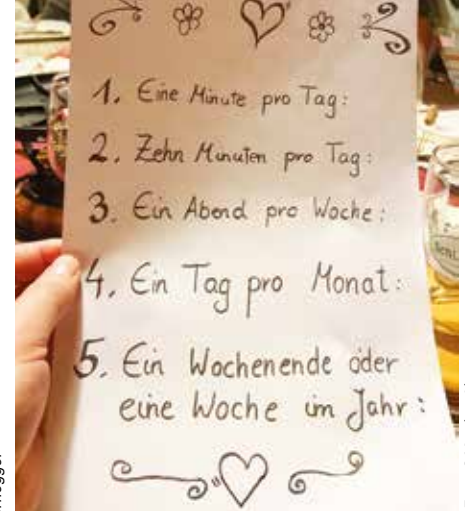 1. Eine Minute pro Tag:
2. Zehn Minuten pro Tag:
3. Ein Abend pro Woche:
4. Ein Tag pro Monat:
5. Ein Wochenende oder
eine Woche im Jahr: